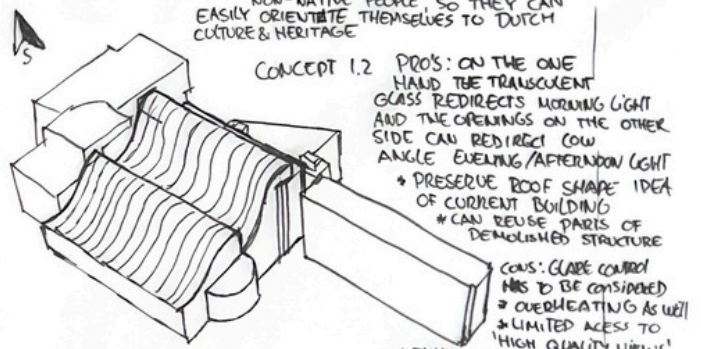 NON-NATIVE PEOPLE, SO THEY CAN
EASILY ORIENTATE THEMSELVES TO DUTCH
CULTURE & HERITAGE
S
CONCEPT 1.2 PRO'S: ON THE ONE
HAND THE TRANSCULENT
GLASS REDIRECTS MORNING LIGHT
AND THE OPENINGS ON THE OTHER
SIDE CAN REDIRECT LOW
ANGLE EVENING/AFTERNOON LIGHT
* PRESERVE ROOF SHAPE IDEA
OF CURRENT BUILDING
* CAN REUSE PARTS OF
DEMOLISHED STRUCTURE
CONS: GLARE CONTROL
HAS TO BE CONSIDERED
* OVERHEATING AS WELL
* LIMITED ACESS TO
'HIGH QUALITY VIEWS'